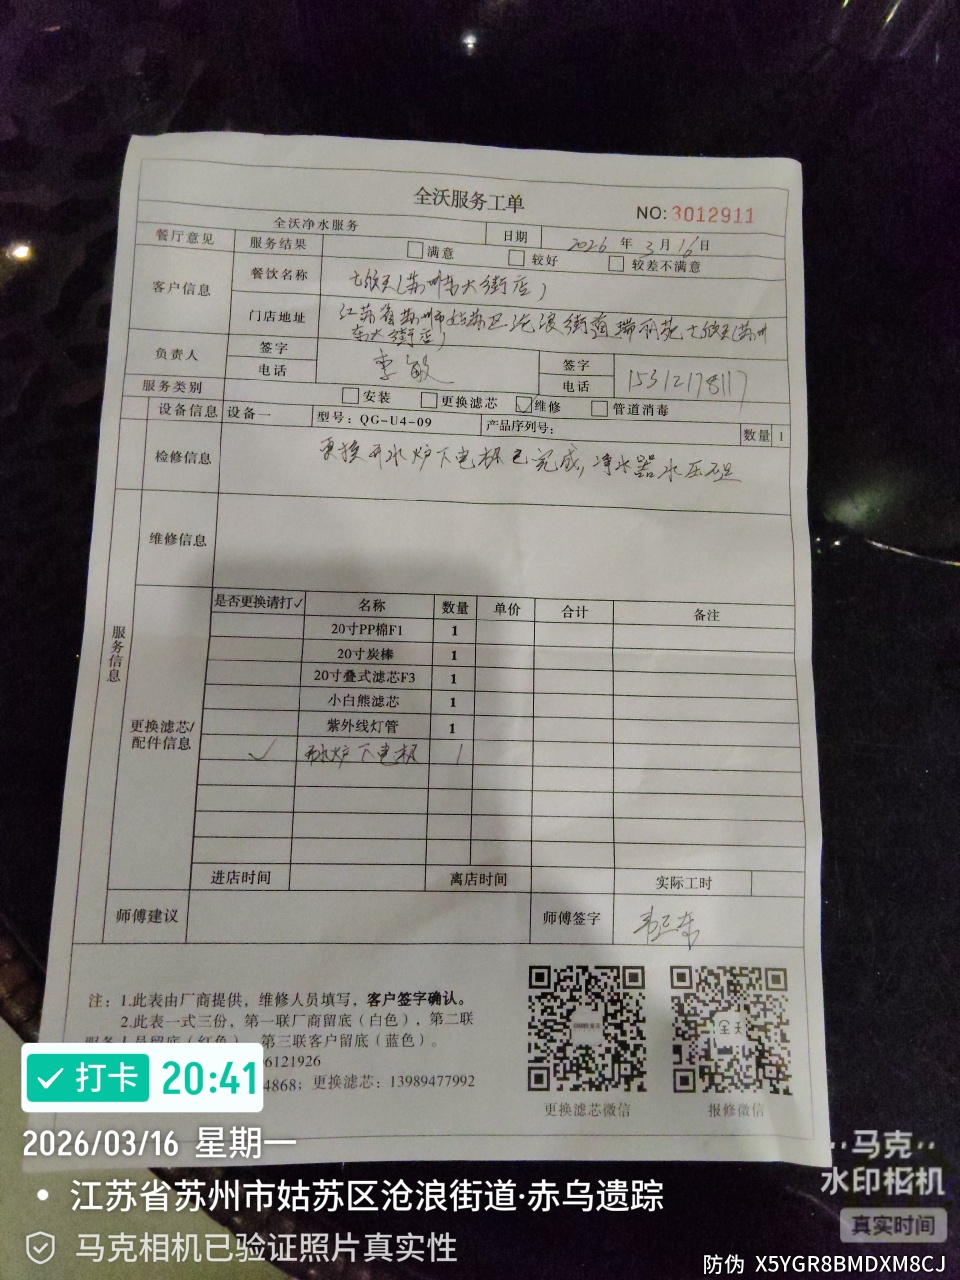 全沃服务工单
NO: 3012911
全沃净水服务 日期 2026 年 3 月 16 日
餐厅意见 服务结果 满意 较好 较差不满意
客户信息 餐饮名称 七欣天(苏州东大街店)
门店地址 江苏省苏州市姑苏区沧浪街道瑞丽苑七欣天(苏州
东大街店)
负责人 签字 李敏 签字
电话 电话 15312178117
服务类别 安装 更换滤芯 ✓维修 管道消毒
设备信息 设备一 型号: QG-U4-09 产品序列号: 数量 1
检修信息 更换开水炉下电极已完成,净水器水压不足
维修信息
服务信息
是否更换请打✓ 名称 数量 单价 合计 备注
20寸PP棉F1 1
20寸炭棒 1
20寸叠式滤芯F3 1
小白熊滤芯 1
紫外线灯管 1
更换滤芯/
配件信息
✓ 开水炉下电极 1
进店时间 离店时间 实际工时
师傅建议 师傅签字
注: 1.此表由厂商提供，维修人员填写，客户签字确认。
2.此表一式三份，第一联厂商留底（白色），第二联
服务人员留底（红色），第三联客户留底（蓝色）。
6121926
4868; 更换滤芯: 13989477992
更换滤芯微信 报修微信
打卡 20:41
2026/03/16 星期一
江苏省苏州市姑苏区沧浪街道·赤乌遗踪
马克相机已验证照片真实性
马克
水印相机
真实时间
防伪 X5YGR8BMDXM8CJ